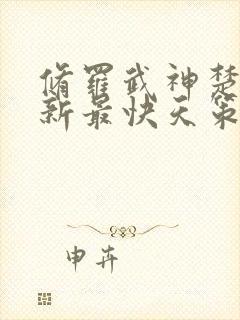 脩羅武神楚
新最快天策
申卉